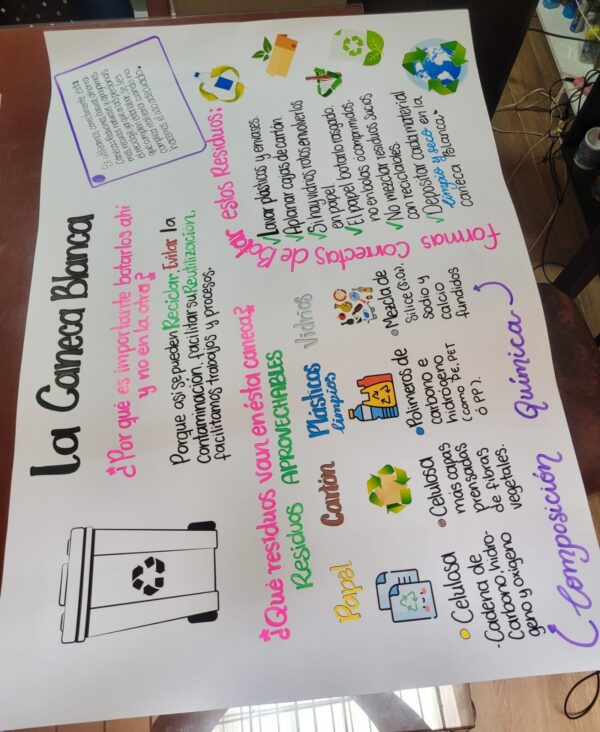 La Caneca Blanca
¿Por qué es importante botarlos ahí
y no en la otra?
Porque así se pueden Reciclar, Evitar la
Contaminación, facilitar su Reutilización,
facilitamos trabajos y procesos.
¿Qué residuos van en ésta caneca?
Residuos APROVECHABLES
Papel
• Celulosa
- Cadena de
Carbono, hidro-
geno y oxigeno
Cartón
• Celulosa
más capas
prensadas
de fibras
vegetales.
Plásticos
limpios
• Polimeros de
carbono e
hidrogeno
(como PE, PET
ó PP).
Vidrios
• Mezcla de
Silice (SiO2),
sodio y
calcio
fundidos
Composición Química
Formas Correctas de Botar estos Residuos:
✓ Lavar plásticos y envases
✓ Aplanar cajas de cartón
✓ Si hay vidrios rotos envolverlos
en papel.
✓ El papel botarlo rasgado,
no en bolas o comprimidos.
✓ No mezclar residuos sucos
con reciclables
✓ Depositar cada material
limpio y seco en la
caneca blanca